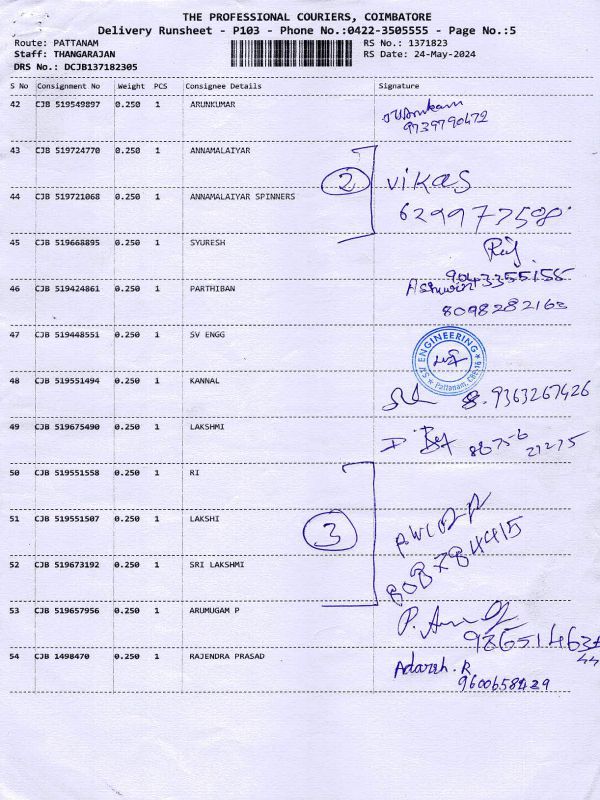 THE PROFESSIONAL COURIERS, COIMBATORE
Delivery Runsheet - P103 - Phone No.:0422-3505555 - Page No.:5
Route: PATTANAM
Staff: THANGARAJAN
DRS No.: DCJB137182305
RS No.: 1371823
RS Date: 24-May-2024
S No Consignment No Weight PCS Consignee Details Signature
42 CJB 519549897 0.250 1 ARUNKUMAR
9739790472
43 CJB 519724770 0.250 1 ANNAMALAIYAR
2 vikas
44 CJB 519721068 0.250 1 ANNAMALAIYAR SPINNERS
6299773508
45 CJB 519668895 0.250 1 SYURESH
9043355155
46 CJB 519424861 0.250 1 PARTHIBAN Ashwin
8098282163
47 CJB 519448551 0.250 1 SV ENGG
SV ENGINEERING
Pattanam, CBE-16
48 CJB 519551494 0.250 1 KANNAL
9363267426
49 CJB 519675490 0.250 1 LAKSHMI
50 CJB 519551558 0.250 1 RI
51 CJB 519551507 0.250 1 LAKSHI
3
8087844415
52 CJB 519673192 0.250 1 SRI LAKSHMI
53 CJB 519657956 0.250 1 ARUMUGAM P
54 CJB 1498470 0.250 1 RAJENDRA PRASAD
Adarsh. R
9600658429